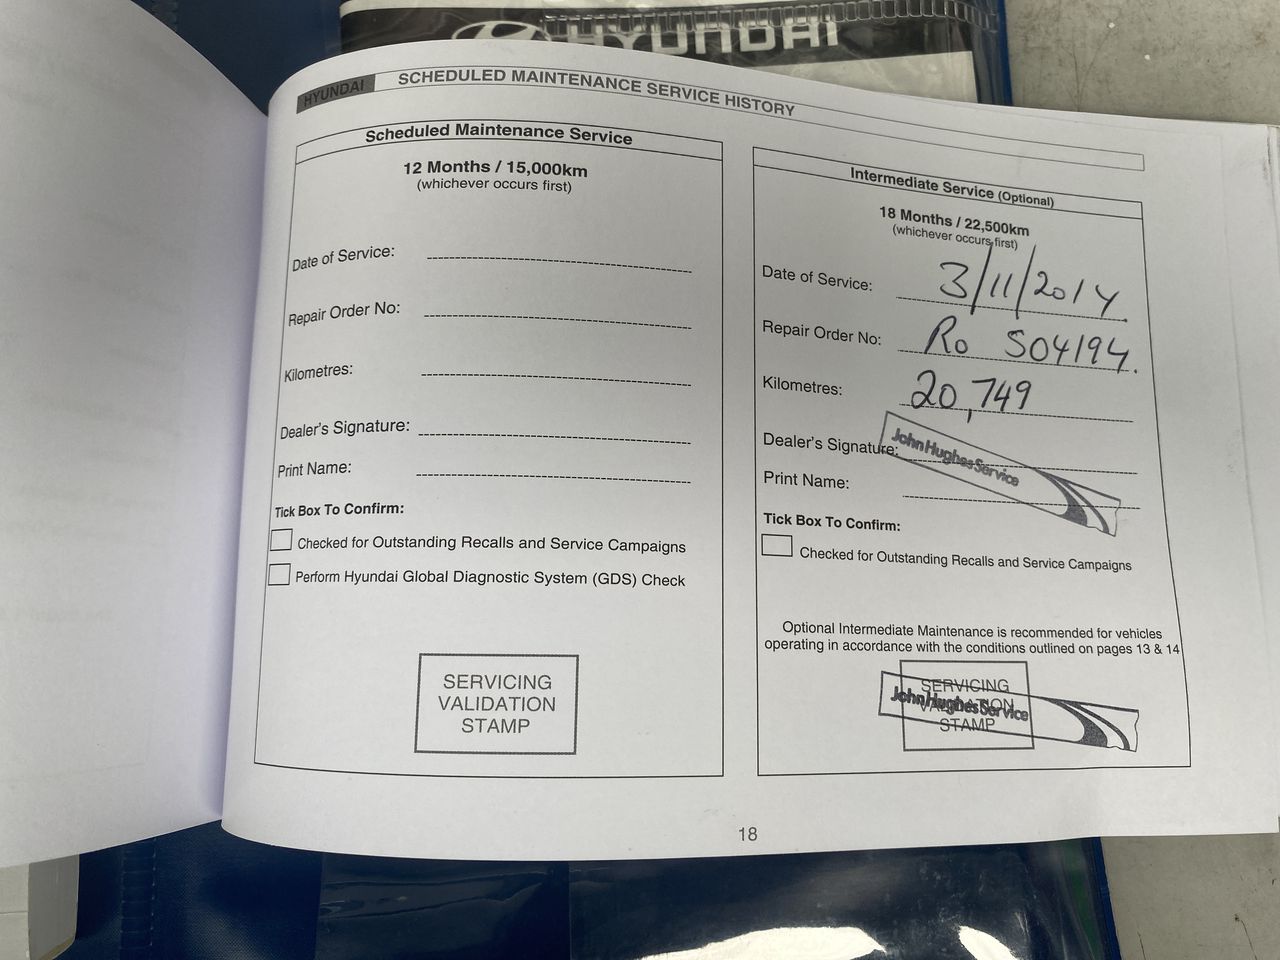 HYUNDAI
HYUNDAI
SCHEDULED MAINTENANCE SERVICE HISTORY
Scheduled Maintenance Service
12 Months / 15,000km
(whichever occurs first)
Date of Service:
Repair Order No:
Kilometres:
Dealer's Signature:
Print Name:
Tick Box To Confirm:
Checked for Outstanding Recalls and Service Campaigns
Perform Hyundai Global Diagnostic System (GDS) Check
SERVICING
VALIDATION
STAMP
Intermediate Service (Optional)
18 Months / 22,500km
(whichever occurs first)
Date of Service: 3/11/2014
Repair Order No: Ro S04194.
Kilometres: 20,749
Dealer's Signature: John Hughes Service
Print Name:
Tick Box To Confirm:
Checked for Outstanding Recalls and Service Campaigns
Optional Intermediate Maintenance is recommended for vehicles
operating in accordance with the conditions outlined on pages 13 & 14
SERVICING
VALIDATION
STAMP
John Hughes Service
18